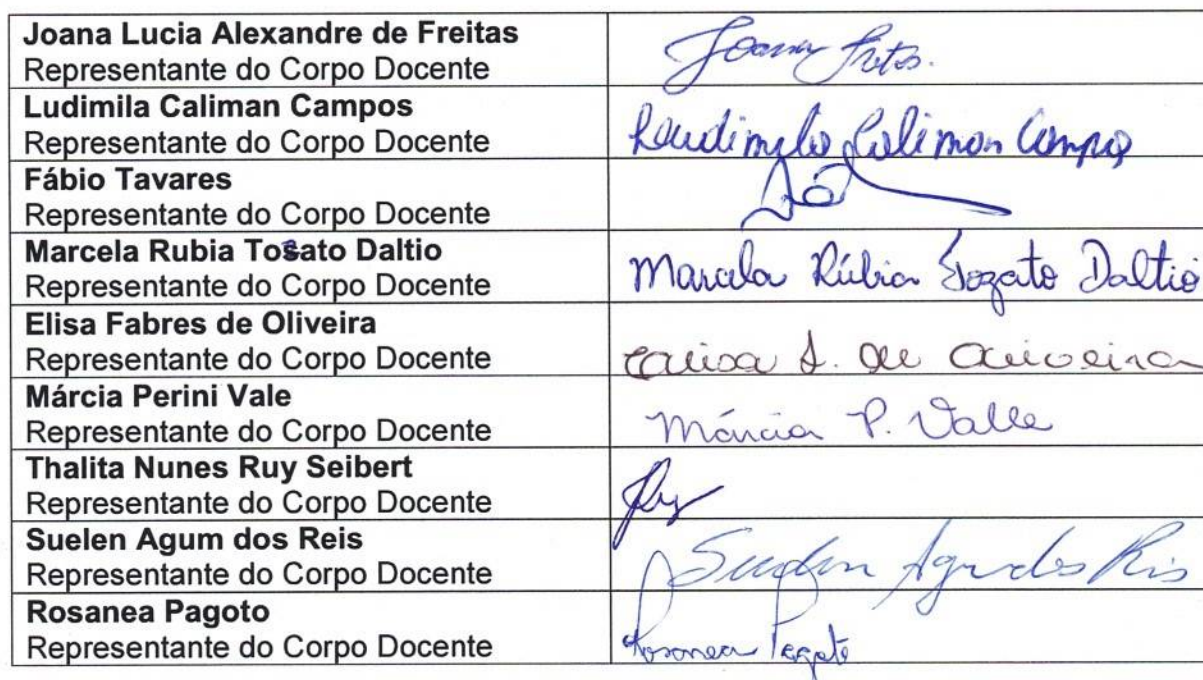 Joana Lucia Alexandre de Freitas
Representante do Corpo Docente
Joana
Ludimila Caliman Campos
Representante do Corpo Docente
Ludimila Caliman Campos
Fábio Tavares
Representante do Corpo Docente
Marcela Rubia Tosato Daltio
Representante do Corpo Docente
Marcela Rúbia Tozato Daltio
Elisa Fabres de Oliveira
Representante do Corpo Docente
Elisa F. de Oliveira
Márcia Perini Vale
Representante do Corpo Docente
Márcia P. Valle
Thalita Nunes Ruy Seibert
Representante do Corpo Docente
Ruy
Suelen Agum dos Reis
Representante do Corpo Docente
Suelen Agum dos Reis
Rosanea Pagoto
Representante do Corpo Docente
Rosanea Pagoto